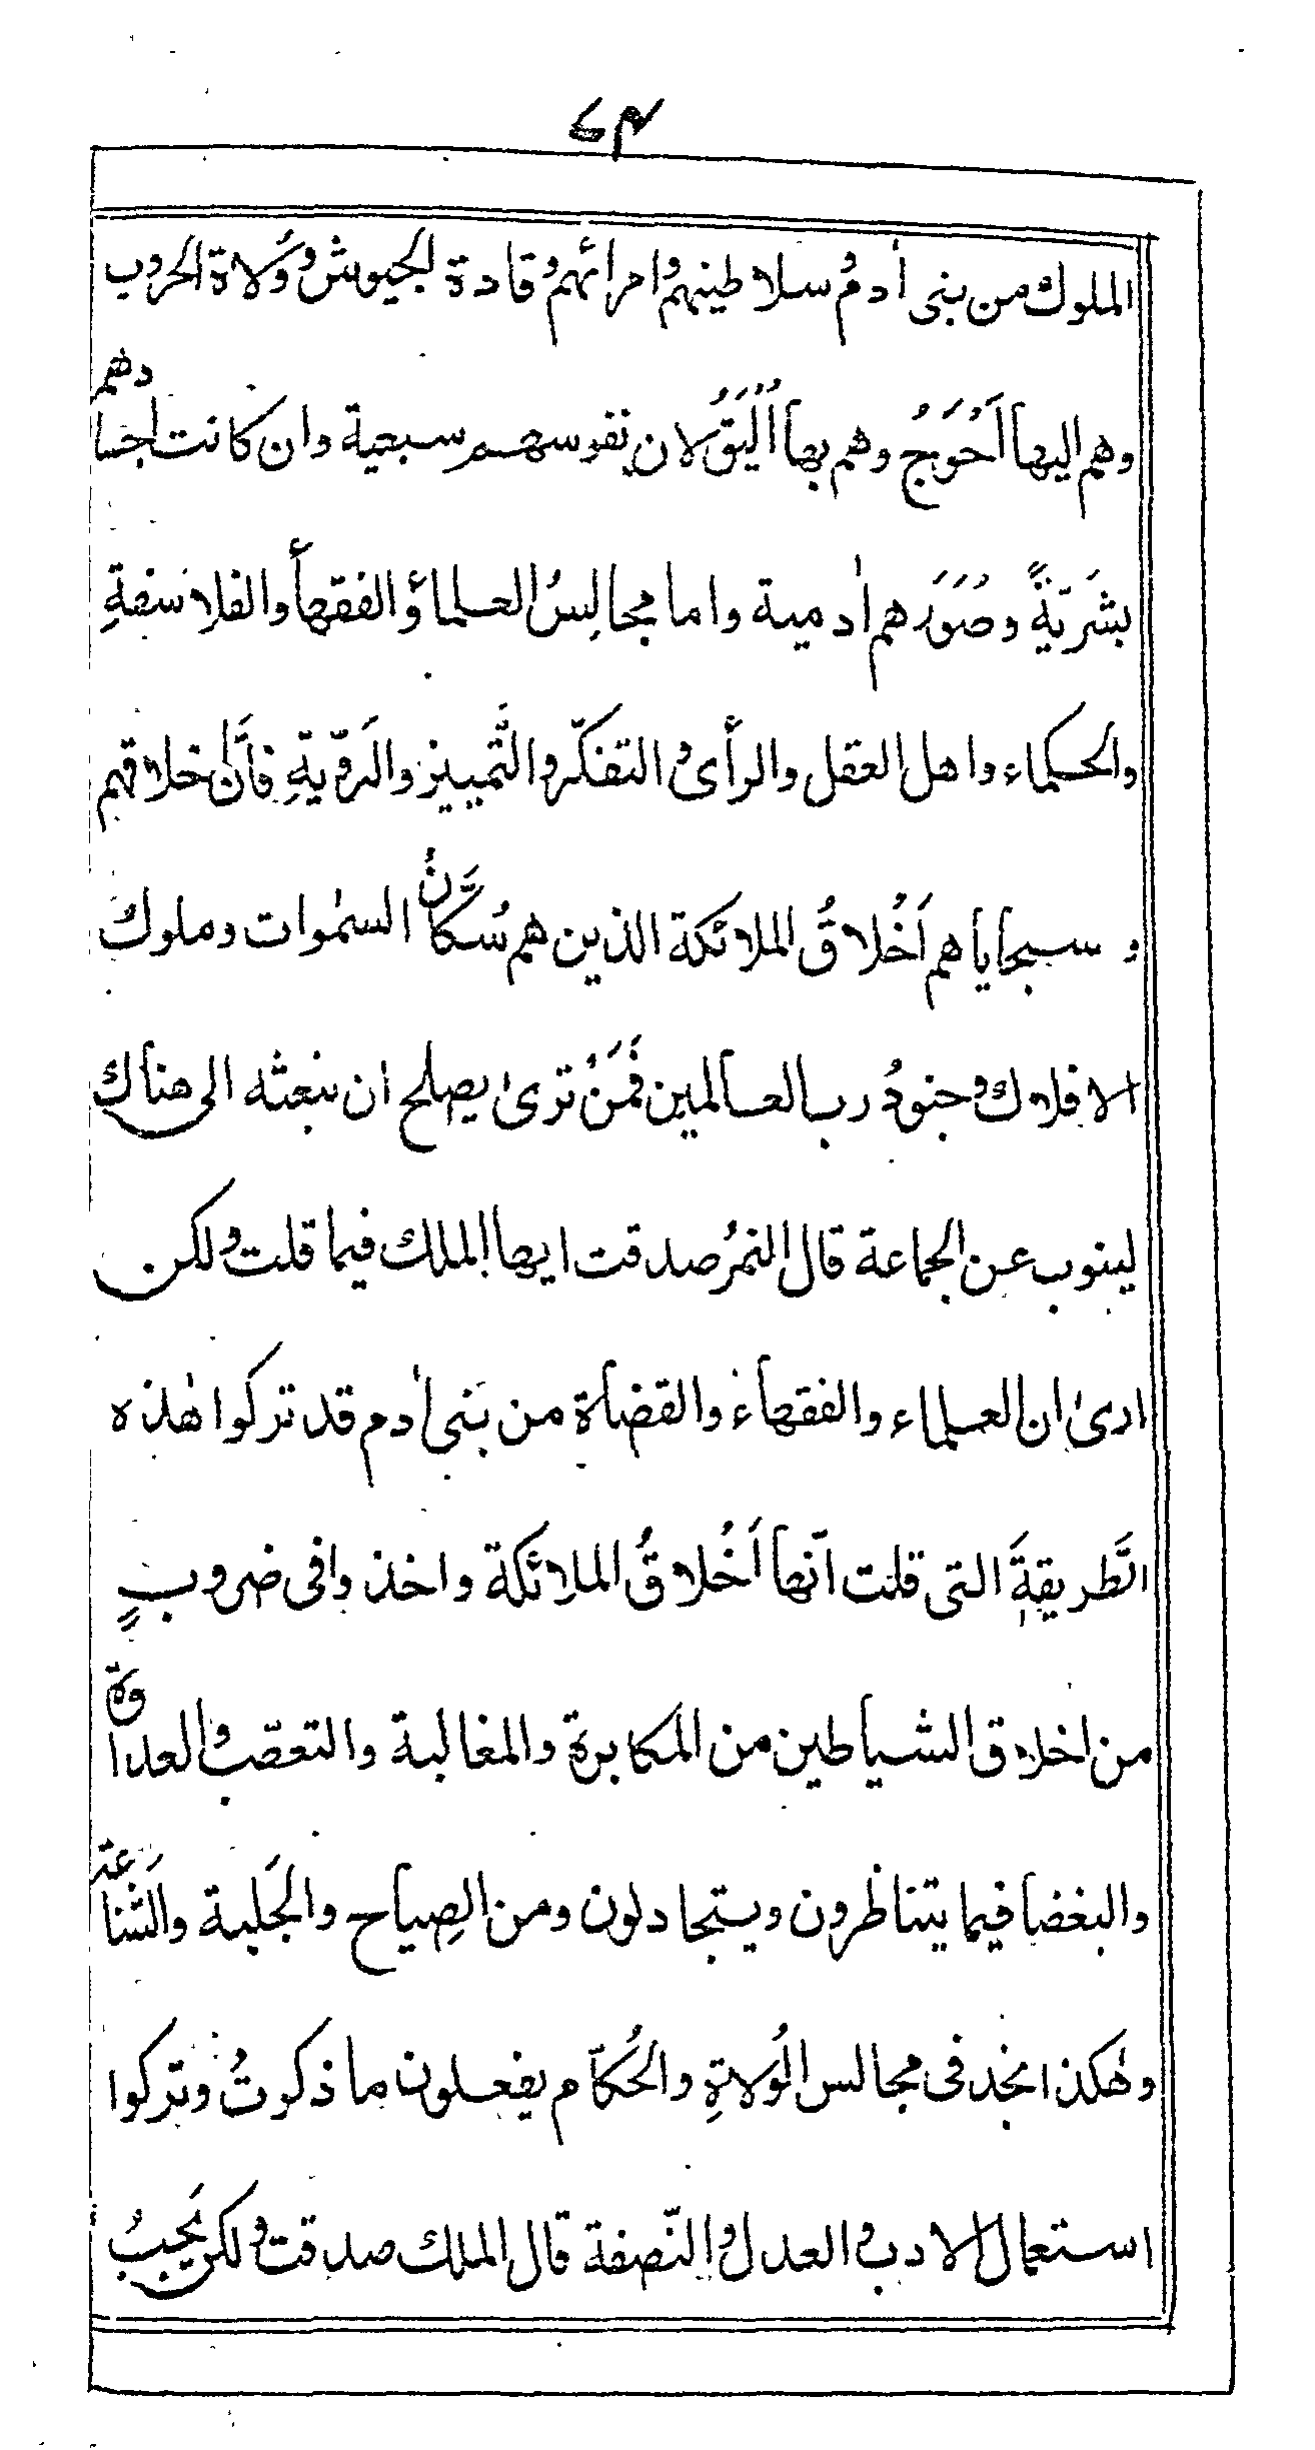 ٤٣
الملوك من بنى أدم و سلاطينهم و امرائهم و قادة الجيوش و وُلاة الحروب
وهم اليها اَحْوَجُ وهم بها اَلْيَقُ لان نفوسهم سبعية وان كانت اجسادهم
بشَريّةً وصُوَرهم اٰدمية واما مجالِسُ العلماؤ الفقهأ والفلاسفةِ
والحكماء واهل العقل والرأى و التفكّر و التَّمييز والَروّيةِ فأَنَّ خلاقهم
و سجاياهم اَخْلاقُ الملائكة الذين هم سُكَّانُ السمٰوات وملوك
الافلاك و جنودُ رب العالمين فَمَنْ ترىٰ يصلح ان نبعثه الى هناك
لينوب عن الجماعة قال النمرُ صدقت ايها الملك فيما قلت و لكن
ارىٰ ان العلماء والفقهاءَ والقضاة من بَنى اٰدم قد تركوا هٰذه
الَّطريقةَ التى قلت اَنّها اَخْلاقُ الملائكة واخذوا فى ضروبٍ
من اخلاق الشياطين من المكابرة والمغالبة والتعصّب و العداوة
والبغضا فيما يتناظرون ويتجادلون ومن الصِياح والجَلبة والَشَّناعة
وهٰكذا نجد فى مجالس الُولاةِ والحُكاّم يفعلون ما ذكرتُ وتركوا
استعمال الادب و العدل و النّصفة قال الملك صدقت و لكن يَجبُ